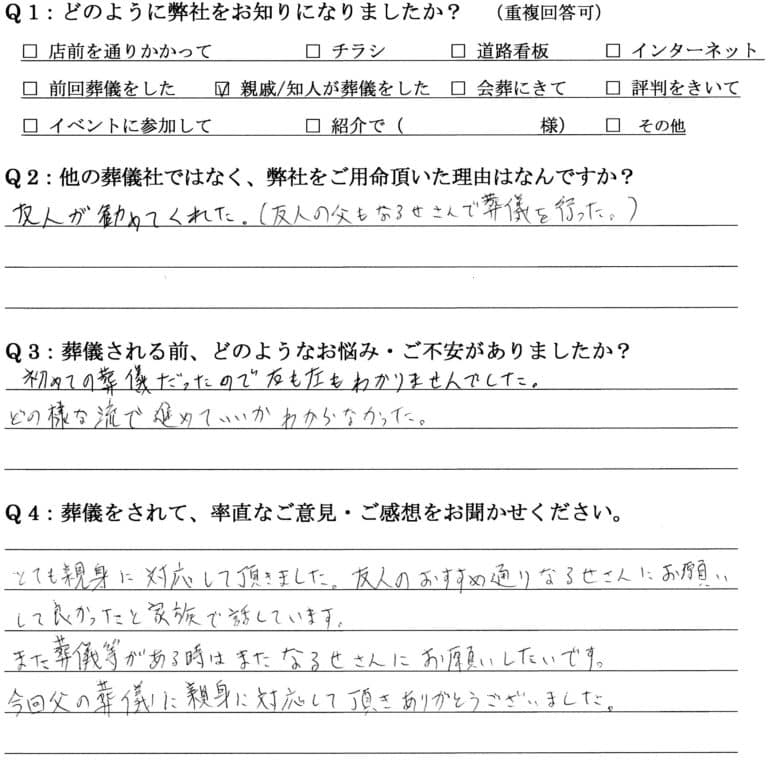 Q1：どのように弊社をお知りになりましたか？ （重複回答可）
□ 店前を通りかかって □ チラシ □ 道路看板 □ インターネット
□ 前回葬儀をした ☑ 親戚/知人が葬儀をした □ 会葬にきて □ 評判をきいて
□ イベントに参加して □ 紹介で（ 様） □ その他
Q2：他の葬儀社ではなく、弊社をご用命頂いた理由はなんですか？
友人が勧めてくれた。（友人の父もなるせさんで葬儀を行った。）
Q3：葬儀される前、どのようなお悩み・ご不安がありましたか？
初めての葬儀だったので右も左もわかりませんでした。
どの様な流で進めていいかわからなかった。
Q4：葬儀をされて、率直なご意見・ご感想をお聞かせください。
とても親身に対応して頂きました。友人のおすすめ通りなるせさんにお願い
して良かったと家族で話しています。
また葬儀等がある時はまたなるせさんにお願いしたいです。
今回父の葬儀に親身に対応して頂きありがとうございました。